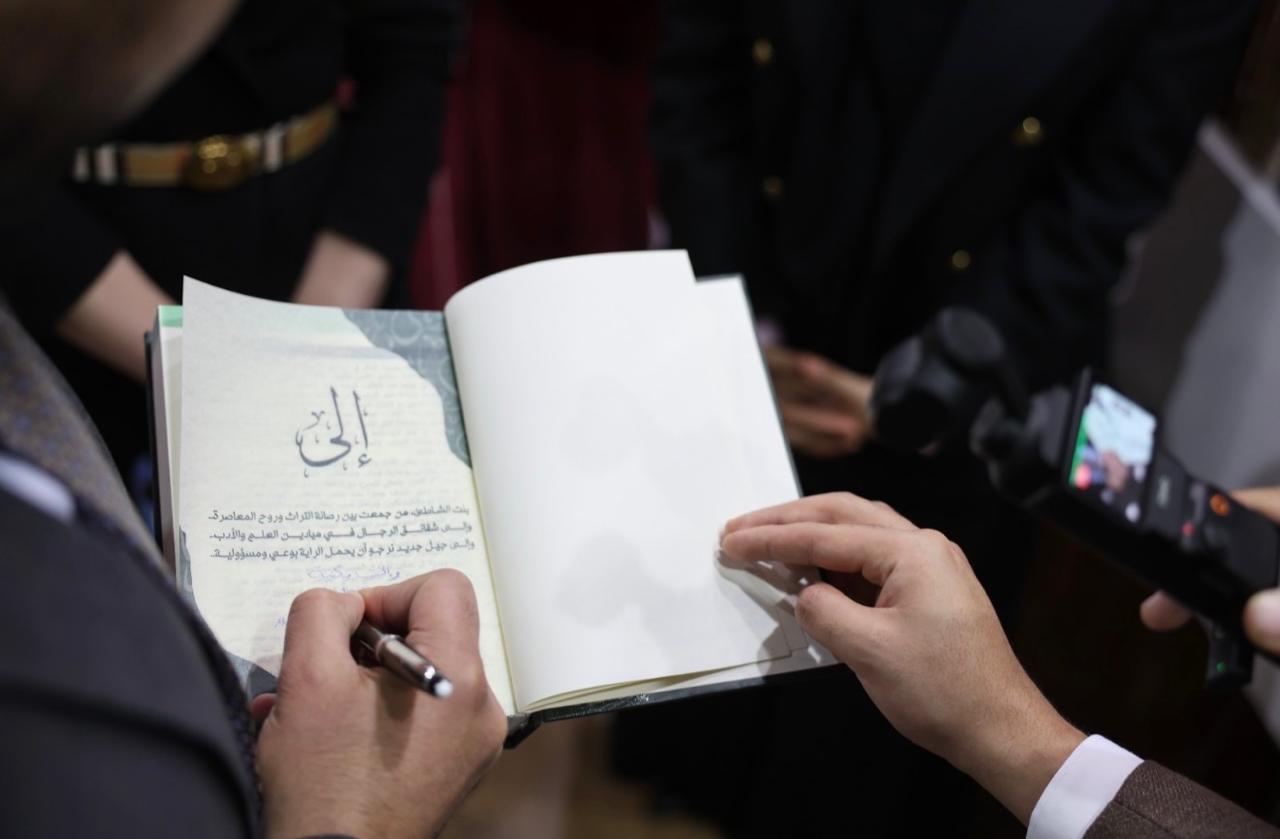 إلى
بنت الشاطئ، من جمعت بين رصانة التراث وروح المعاصرة.
وإلــى شقائق الرجـال فــي ميادين العلـم والأدب.
وإلى جيل جديد نرجو أن يحمل الراية بوعي ومسؤولية..